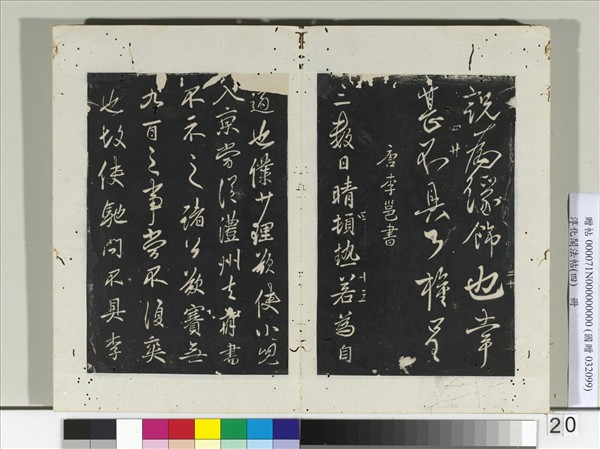 說為緣飾也幸
甚不具了權呈
唐李邕書
三數日晴頓熱若為自
適也僕廿理欲使小兒
入京嘗從澧州去附書
不示之諸公欲賽無
九百之事嘗不復爽
也故使馳問不具李
贈帖 000071N000000000 (國贈 032099)
淳化閣法帖(四) 冊
20